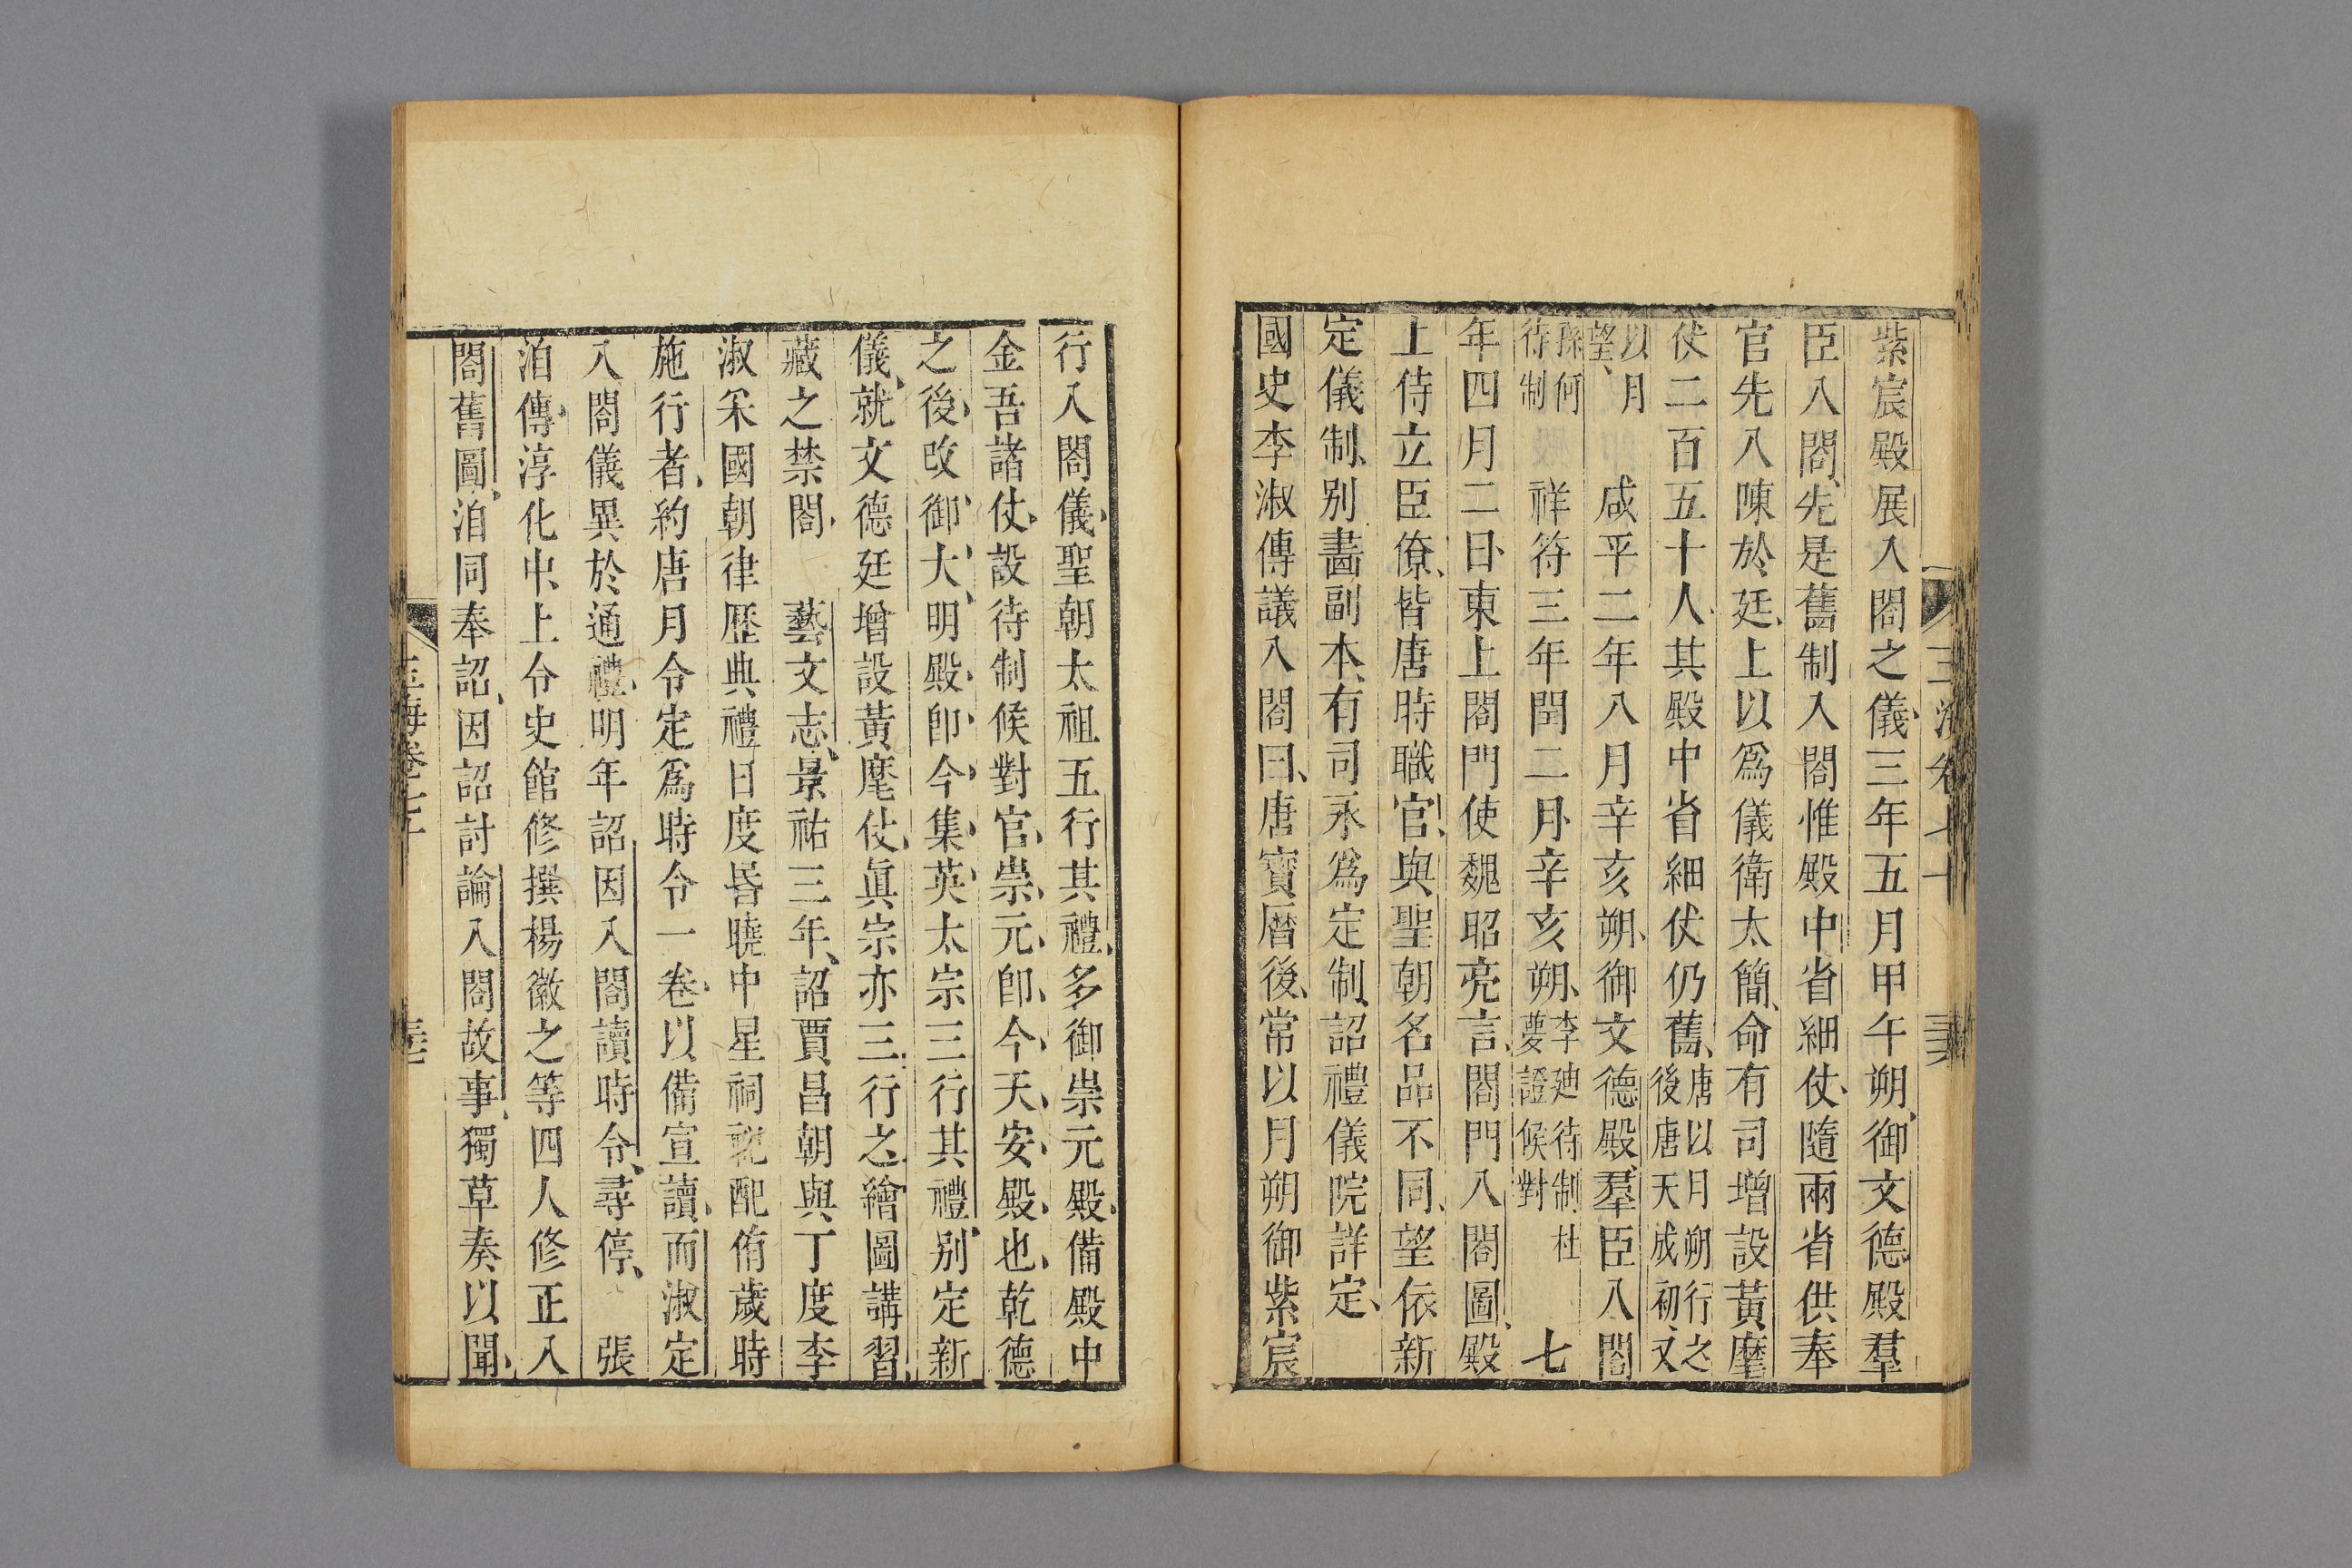 紫宸殿展入閤之儀三年五月甲午朔御文德殿羣
臣入閤先是舊制入閤惟殿中省細仗隨兩省供奉
官先入陳於廷上以爲儀衛太簡命有司增設黃麾
仗二百五十人其殿中省細仗仍舊唐以月朔行之
後唐天成初又
以月
望
咸平二年八月辛亥朔御文德殿羣臣入閤
孫何
待制
祥符三年閏二月辛亥朔李迪待制杜
夢證候對
七
年四月二日東上閤門使魏昭亮言閤門入閤圖殿
上侍立臣僚皆唐時職官與聖朝名品不同望依新
定儀制別畫副本有司永爲定制詔禮儀院詳定
國史李淑傳議入閤曰唐寶曆後常以月朔御紫宸
行入閤儀聖朝太祖五行其禮多御崇元殿備殿中
金吾諸仗設待制候對官崇元卽今天安殿也乾德
之後改御大明殿卽今集英太宗三行其禮別定新
儀就文德廷增設黃麾仗眞宗亦三行之繪圖講習
藏之禁閤
藝文志景祐三年詔賈昌朝與丁度李
淑采國朝律歷典禮日度昏曉中星祠祀配侑歲時
施行者約唐月令定爲時令一卷以備宣讀而淑定
入閤儀異於通禮明年詔因入閤讀時令尋停
張
洎傳淳化中上令史館修撰楊徽之等四人修正入
閤舊圖洎同奉詔因詔討論入閤故事獨草奏以聞